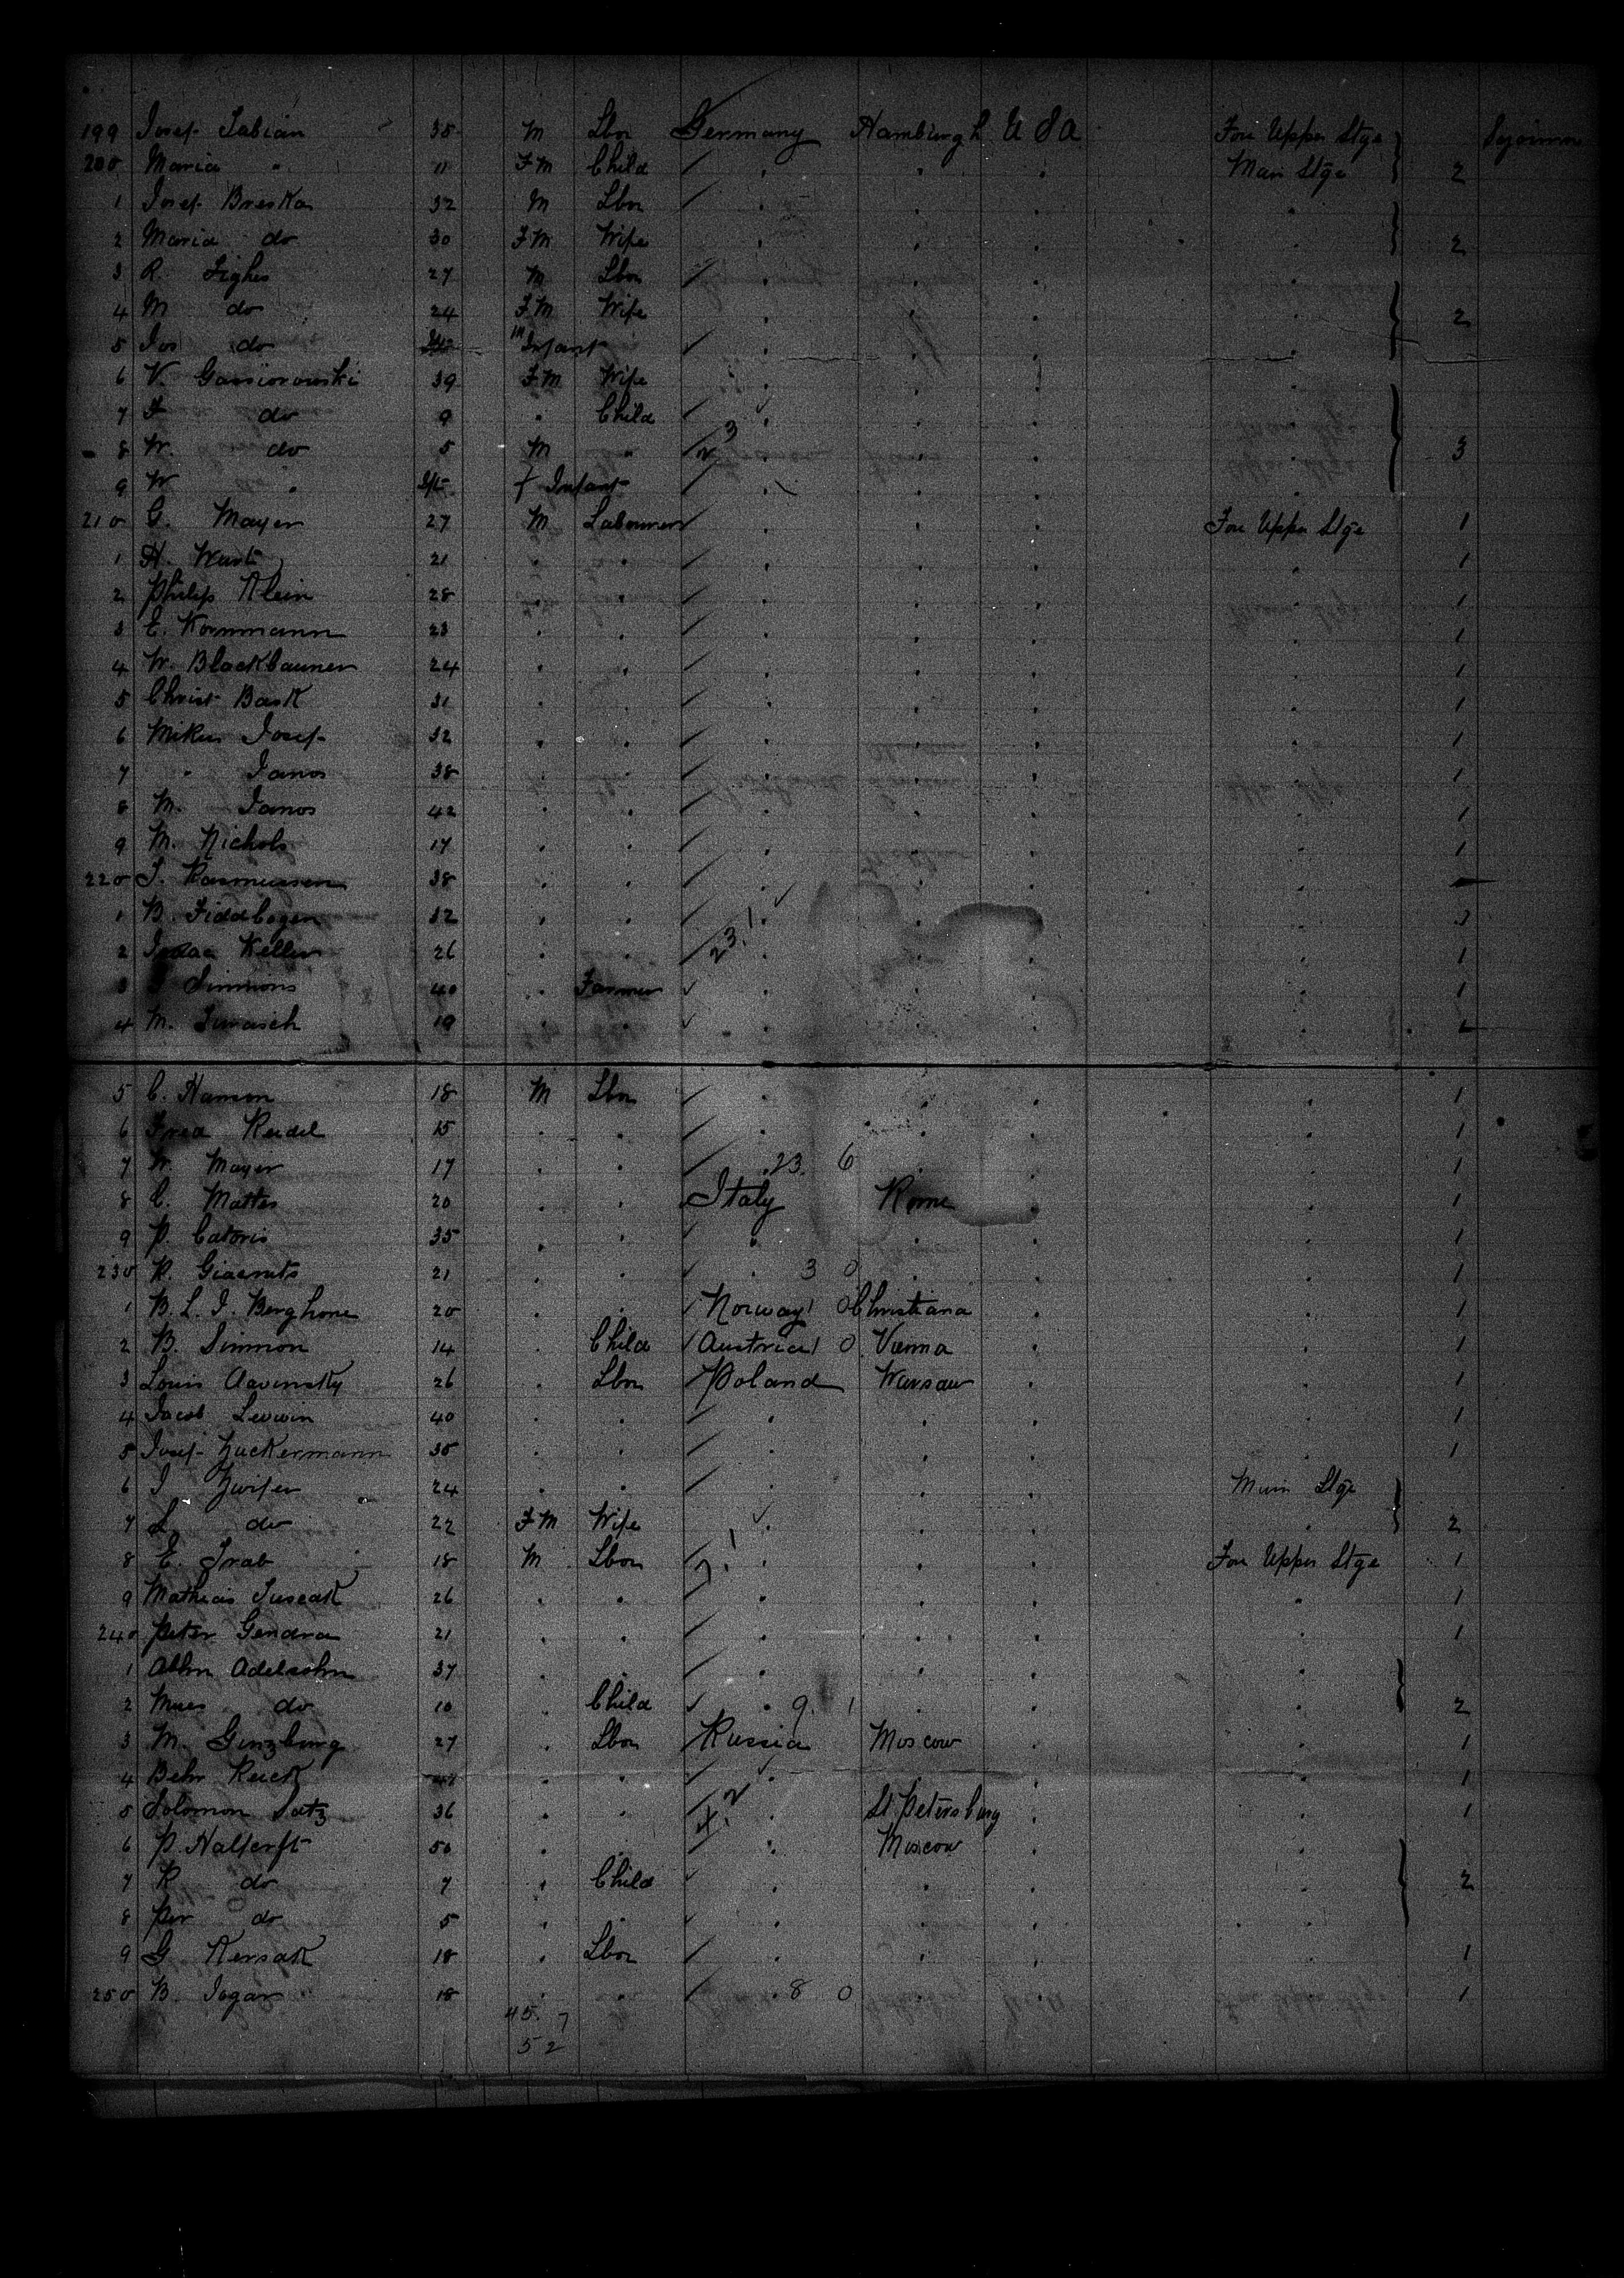 199 Josef Fabian 35 M Lbor Germany Hamburgh U S A Fore Upper Stge Sojourn
200 Maria " 11 F M Child Main Stge 2
1 Josef Breska 32 M Lbor
2 Maria do 30 F M Wife 2
3 R. 27 M Lbor
4 M do 24 F M Wife 2
5 Jos do M Infant
6 V. Gassiorowski 39 F M Wife
7 do 9 " Child
8 W. do 5 M " 3
9 W " Inft f Infant
210 G. Mayer 27 M Labourer Fore Upper Stge 1
1 H. 21 " " 1
2 Philip Klein 28 " " 1
3 E. Kornmann 23 " " 1
4 W. Blackbauner 24 " " 1
5 Christ Bask 31 1
6 Mikus Josef 32 " " 1
7 " Janos 38 " " 1
8 M. Janos 42 1
9 M. Nichols 17 " " 1
220 J. Rasmussen 38 " "
1 B. Fiddbogen 32 " "
2 Isdac Keller 26 " 23.1 1
3 Simmons 40 " Farmer 1
4 M. 19 " "
5 C. Hanson 18 M Lbor 1
6 Fred Reidel 15 " " 1
7 W. Mayer 17 " " 23. 6 1
8 C. Mattes 20 " " Italy Rome 1
9 P. Catoris 35 " " 1
230 P. 21 " " 3 0 1
1 B. L. J. Berghone 20 " " Norway 1 0 Christiana 1
2 B. Simmon 14 " Child Austria 1 0 Vienna 1
3 Louis 26 " Lbor Poland Warsaw 1
4 Jacob Lewin 40 " " 1
5 Josef Zuckermann 35 " " 1
6 J Zwifer 24 " " Main Stge
7 L do 22 F M Wife 2
8 E. Trab 18 M Lbor 7.1 Fore Upper Stge 1
9 Mathias 26 " " 1
240 Peter Gendra 21 " " 1
1 Abhn Adelsohn 37 " "
2 do 10 " Child 9. 1 2
3 M. Ginzburg 27 " Lbor Russia Moscow 1
4 Behr 1
5 Solomon Satz 36 " " St Petersburg 1
6 P. 50 " Moscow
7 R do 7 " Child 2
8 Per do 5 "
9 G Kersak 18 " Lbor 1
250 B. Jogar 18 " " 8 0 1
45. 7
52